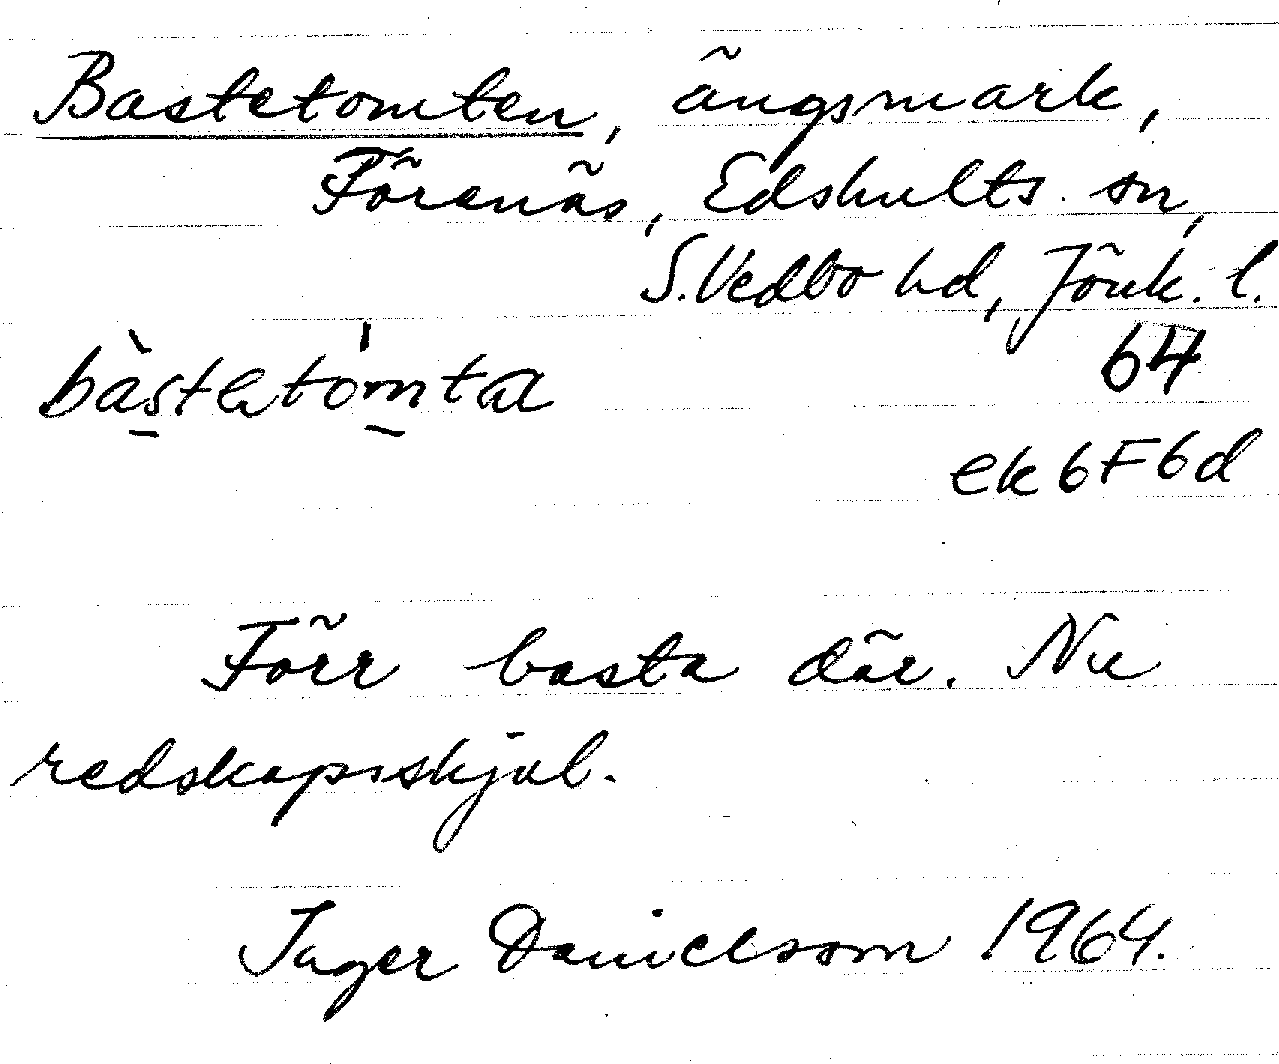 Bastetomten, ängsmark,
Förenäs, Edshults sn,
S. Vedbo hd, Jönk. l.
bàstetómta 64
ek 6F6d
Förr basta där. Nu
redskapsskjul.
Inger Danielsson 1964.